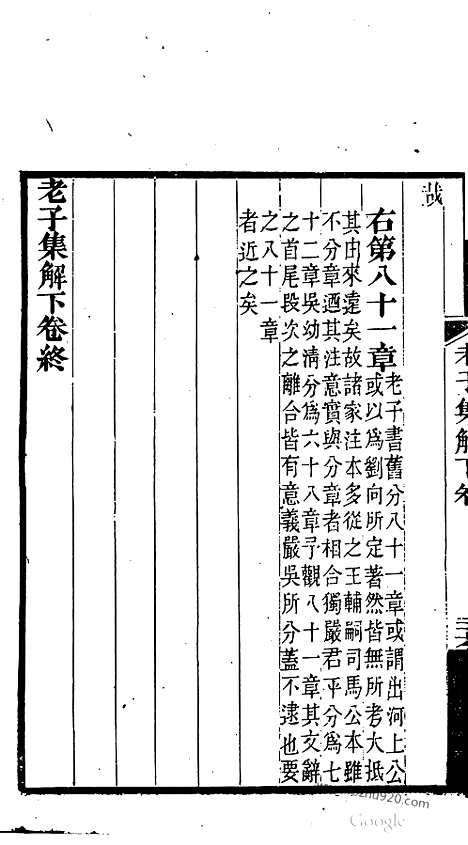 老子集解下卷
哉
右第八十一章
老子書舊分八十一章或謂出河上公
或以爲劉向所定著然皆無所考大抵
其由來遠矣故諸家注本多從之王輔嗣司馬公本雖
不分章迺其注意實與分章者相合獨嚴君平分爲七
十二章吳幼清分爲六十八章予觀八十一章其文辭
之首尾段次之離合皆有意義嚴吳所分蓋不逮也要
之八十一章
者近之矣
老子集解下卷終
Google